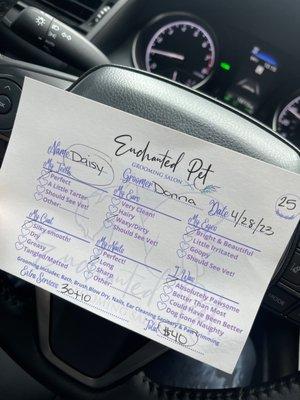 Enchanted Pet
GROOMING SALON
25
Name Daisy Groomer Donna Date 4/28/23
My Teeth
Perfect
A Little Tarter
Should See Vet!
Other:
My Ears
Very Clean!
Hairy
Waxy/Dirty
Should See Vet!
My Eyes
Bright & Beautiful
Little Irritated
Goopy
Should See Vet!
My Coat
Silky Smooth!
Dry
Greasy
Tangled/Matted
My Nails
Perfect!
Long
Sharp
Other:
I Was
Absolutely Pawsome
Better Than Most
Could Have Been Better
Dog Gone Naughty
Grooming Includes: Bath, Brush, Blow Dry, Nails, Ear Cleaning, Sanitary & Paw Trimming
Extra Services: 30+10 Total: $40